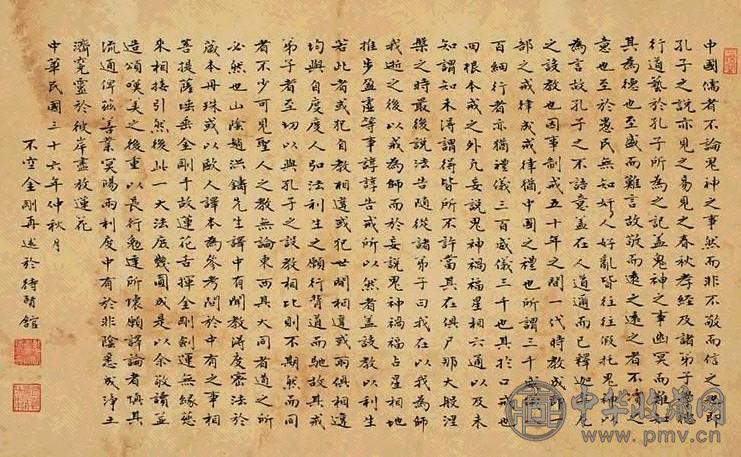 中國儒者不論鬼神之事然而非不敬而信之
孔子之說亦見之易見之春秋孝經及諸弟子德
行道藝於孔子所為之記蓋鬼神之事幽冥而難知
其為德也至盛而難言故敬而遠之遠之者不瀆之
意也至於愚民無知奸人好亂皆往往假托鬼神以
為言故孔子之不語意蓋在人道通而已釋迦牟尼
之設教也因事制戒五十年之間一代時教戒
部之戒律戒律猶中國之禮也所謂三千威儀
百細行者亦猶禮儀三百威儀三千也具於口戒也
四根本戒之外凡妄說鬼神禍福星相六通以及未
知謂知未得謂得皆所不許當其在俱尸那大般涅
槃之時最後說法告隨從諸弟子曰我在以我為師
我逝之後以戒為師而於妄說鬼神禍福占星相地
推步盈虛等事諄諄告戒所以然者蓋設教以利生
若此者或犯自教相違或犯世間相違或兩俱相違
均與自度度人弘法利生之願行背道而馳故其戒
弟子者至切以與孔子之設教相比則不期然而同
者不少可見聖人之教無論東西具大同者道之所
必然也山陰趙洪鑄先生譯中有聞教得度密法於
藏本毋珠或以歐人譯本為參考閱於中有之事相
菩提薩埵垂金剛手放蓮花舌揮金剛劍運無緣慈
來相接引然後此一大法庶幾圓成是以余敬讀並
造頌嘆美之後重以長行勉達所懷願譯論者慎其
流通俾弘善業冥陽兩利度中有於非陰悉成淨土
濟寃靈於彼岸盡放蓮花
中華民國三十六年仲秋月
不空金剛再述於待館
中华收藏网
www.pmv.cn